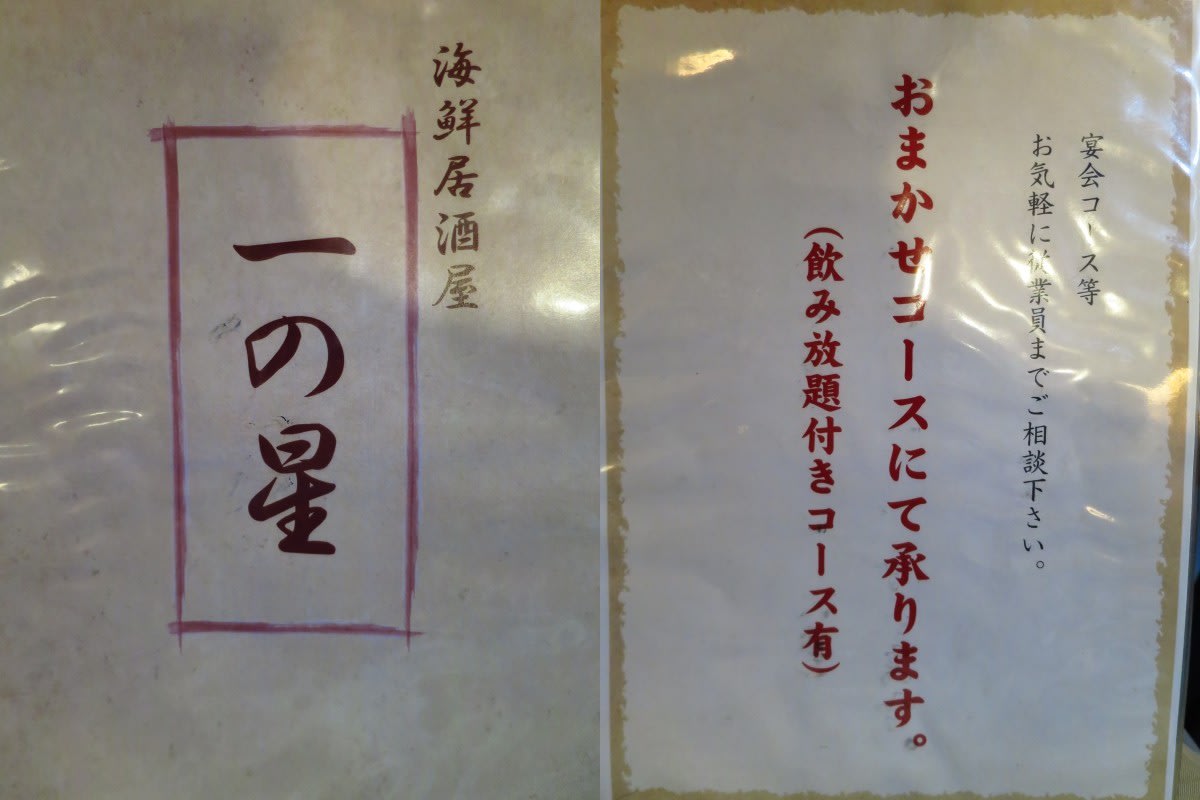 海鮮居酒屋
一の星
宴会コース等
お気軽に従業員までご相談下さい。
おまかせコースにて承ります。
(飲み放題付きコース有)